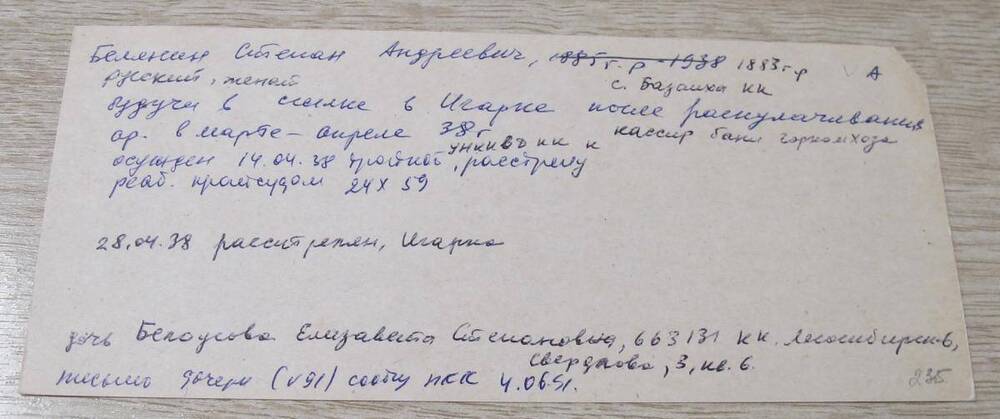 Белянин Степан Андреевич, 1885 г.р - 1938 1883 г.р А
русский, женат с. Базаиха КК
будучи в ссылке в Игарке после раскулачивания
ар. в марте - апреле 38 г кассир бани горкомхоза
осужден 14.04.38 тройкой УНКВД КК к расстрелу
реаб. крайсудом 24 X 59
28.04.38 расстрелян, Игарка
дочь Белоусова Елизавета Степановна, 663131 КК. Лесосибирск-6,
Свердлова, 3, кв. 6.
письмо дочери (V 91) сообщ ККК 4.06.91.
235